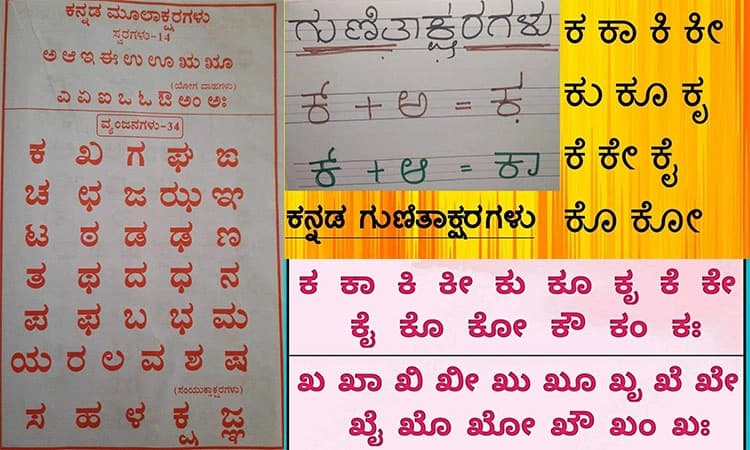 ಕನ್ನಡ ಮೂಲಾಕ್ಷರಗಳು
ಸ್ವರಗಳು-14
ಅ ಆ ಇ ಈ ಉ ಊ ಋ ೠ
(ಯೋಗ ವಾಹಗಳು)
ಎ ಏ ಐ ಒ ಓ ಔ ಅಂ ಅಃ
ವ್ಯಂಜನಗಳು-34
ಕ ಖ ಗ ಘ ಙ
ಚ ಛ ಜ ಝ ಞ
ಟ ಠ ಡ ಢ ಣ
ತ ಥ ದ ಧ ನ
ಪ ಫ ಬ ಭ ಮ
ಯ ರ ಲ ವ ಶ ಷ
(ಸಂಯುಕ್ತಾಕ್ಷರಗಳು)
ಸ ಹ ಳ ಕ್ಷ ಜ್ಞ
ಗುಣಿತಾಕ್ಷರಗಳು
ಕ್ + ಅ = ಕ
ಕ್ + ಆ = ಕಾ
ಕನ್ನಡ ಗುಣಿತಾಕ್ಷರಗಳು
ಕ ಕಾ ಕಿ ಕೀ
ಕು ಕೂ ಕೃ
ಕೆ ಕೇ ಕೈ
ಕೊ ಕೋ
ಕ ಕಾ ಕಿ ಕೀ ಕು ಕೂ ಕೃ ಕೆ ಕೇ
ಕೈ ಕೊ ಕೋ ಕೌ ಕಂ ಕಃ
ಖ ಖಾ ಖಿ ಖೀ ಖು ಖೂ ಖೃ ಖೆ ಖೇ
ಖೈ ಖೊ ಖೋ ಖೌ ಖಂ ಖಃ